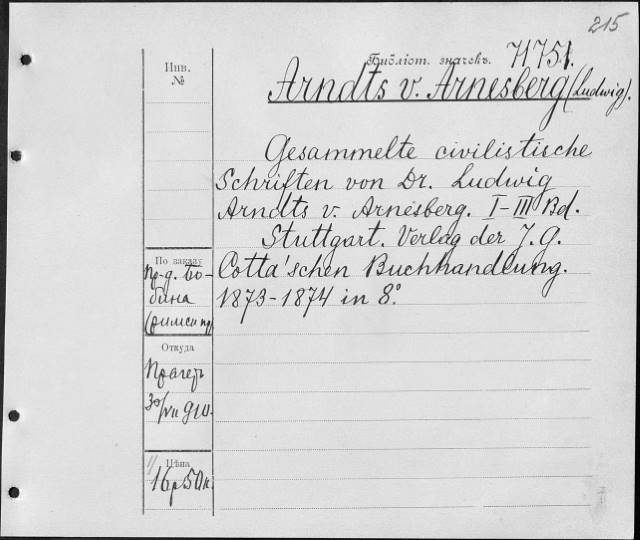 215
Библіот. значекъ. 71751.
Инв.
№
Arndts v. Arnesberg (Ludwig).
Gesammelte civilistische
Schriften von Dr. Ludwig
Arndts v. Arnesberg. I-III Bd.
Stuttgart. Verlag der J. G.
Cotta'schen Buchhandlung.
1873-1874 in 8º.
По заказу
Пр-д.
бина
Откуда
Цѣна
16 р 50 к.